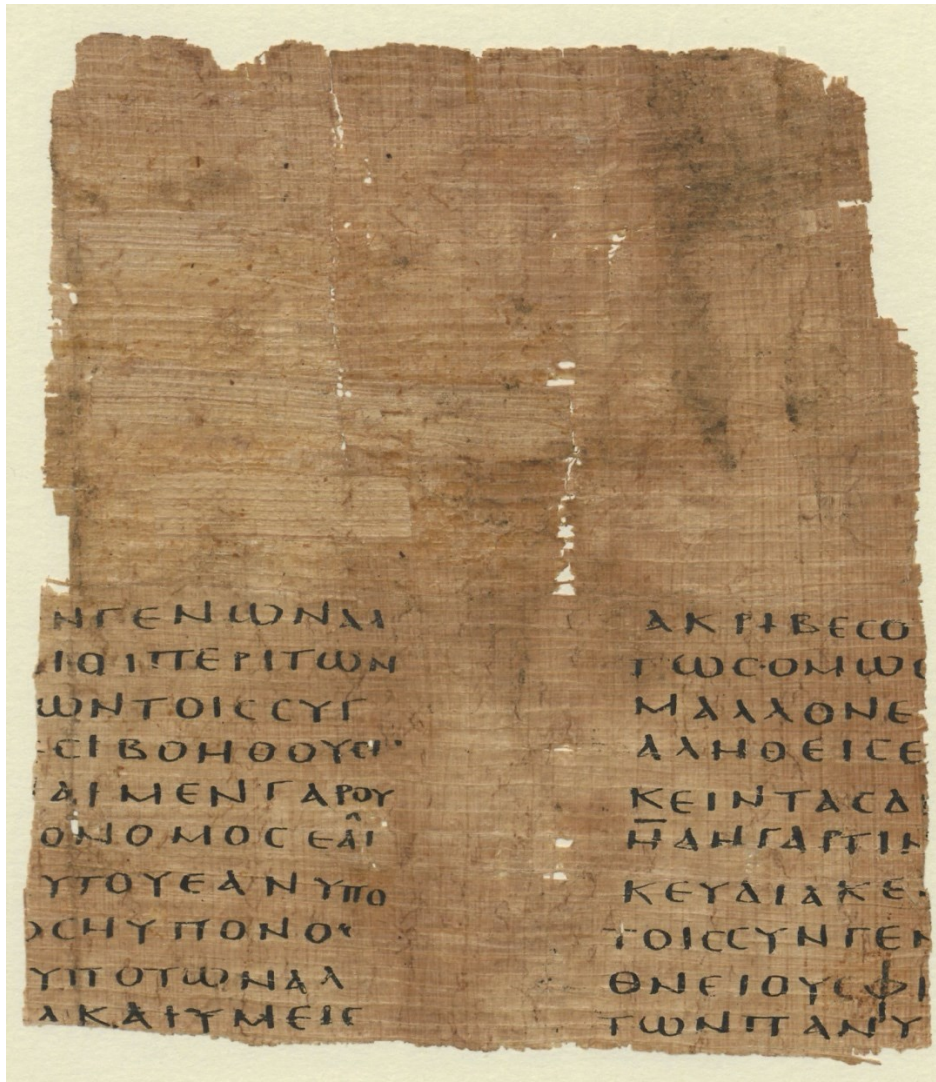 ΝΓΕΝΩΝΑΛ
ΠΕΡΙΤΩΝ
ΩΝΤΟΙϹϹΥΓ
ϹΙΒΟΗΘΟΥϹΙ
ΑΙΜΕΝΓΑΡΟΥ
ΟΝΟΜΟϹΕΑΙ
ΥΤΟΥΕΑΝΥΠΟ
ΟϹΗΥΠΟΝΟΥ
ΥΠΟΤΩΝΑΛ
ΚΑΙΥΜΕΙϹ
ΑΚΡΙΒΕϹΟ
ΤΩϹΟΜΩϹ
ΜΑΛΛΟΝΕ
ΑΛΗΘΕΙϹΕ
ΚΕΙΝΤΑϹΔ
ΗΔΗΓΑΡΤΙΝ
ΚΕΥΔΙΑΚΕ
ΤΟΙϹϹΥΝΓΕΝ
ΘΝΕΙΟΥϹΦΙ
ΤΩΝΠΑΝΥ